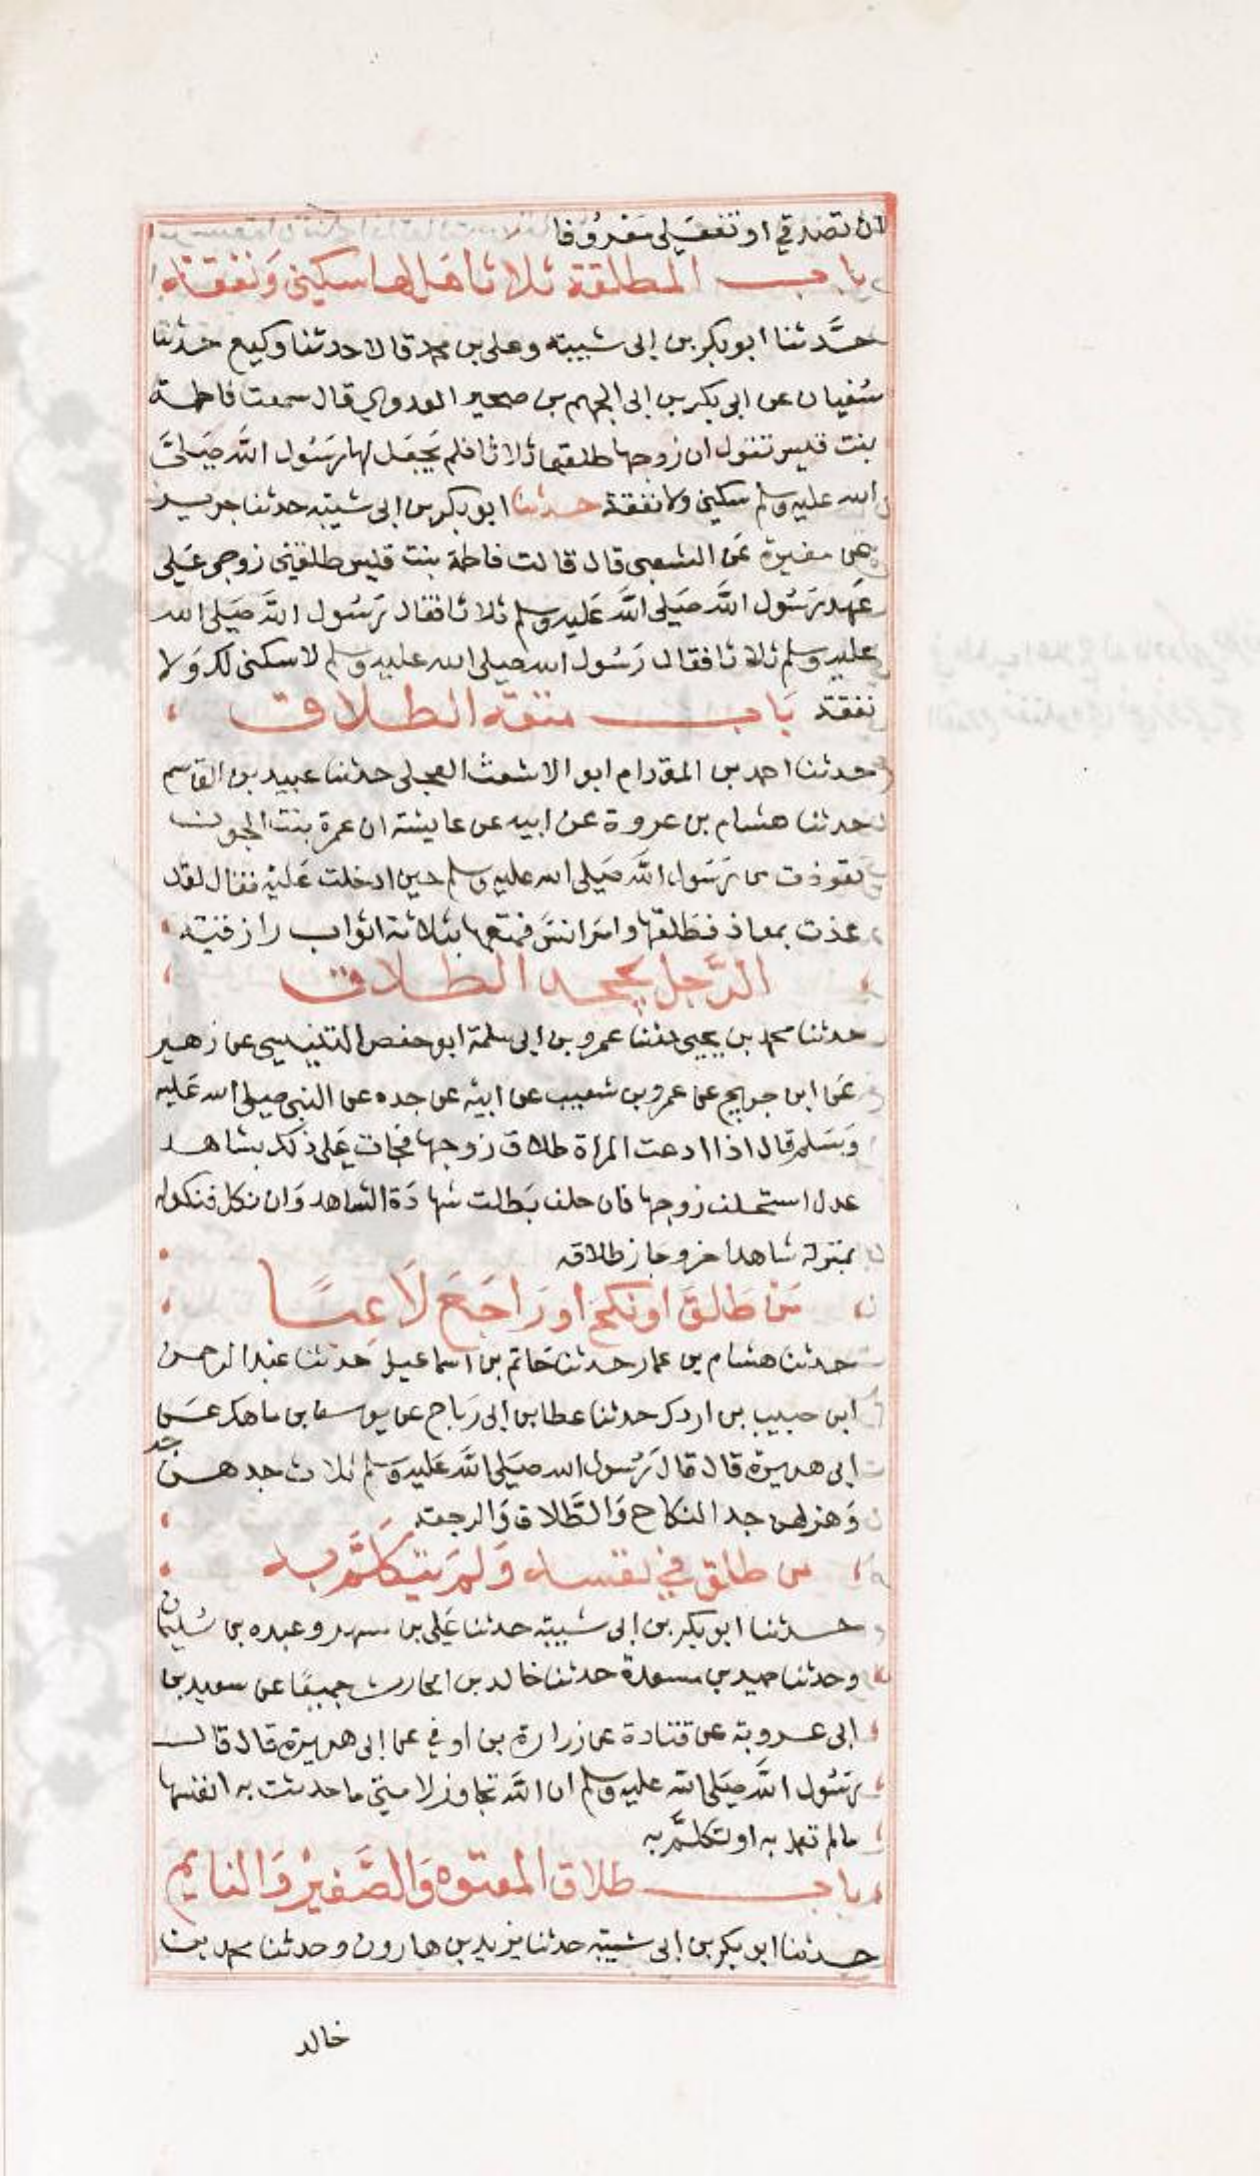 ان تصدقي او تفعلي معروفا
باب المطلقة ثلاثا هل لها سكنى ونفقة
حدثنا ابو بكر بن ابى شيبة وعلى بن محمد قالا حدثنا وكيع حدثنا
سفيان عن ابى بكر بن ابى الجهم بن صخير العدوي قال سمعت فاطمة
بنت قيس تقول ان زوجها طلقها ثلاثا فلم يجعل لها رسول الله صلى
الله عليه وسلم سكنى ولا نفقة حدثنا ابو بكر بن ابى شيبة حدثنا جرير
عن مغيرة عن الشعبى قال قالت فاطمة بنت قيس طلقنى زوجى على
عهد رسول الله صلى الله عليه وسلم ثلاثا فقال رسول الله صلى الله
عليه وسلم ثلاثا فقال رسول الله صلى الله عليه وسلم لا سكنى لك ولا
نفقة باب متعة الطلاق
حدثنا احمد بن المقدام ابو الاشعث العجلى حدثنا عبيد بن القاسم
حدثنا هشام بن عروة عن ابيه عن عايشة ان عمرة بنت الجون
تعوذت من رسول الله صلى الله عليه وسلم حين ادخلت عليه فقال لقد
عذت بمعاذ فطلقها وامر انس فمتعها بثلاثة اثواب رازقية
الرجل يجحد الطلاق
حدثنا محمد بن يحيى حدثنا عمرو بن ابى سلمة ابو حفص التنيسى عن زهير
عن ابن جريج عن عمرو بن شعيب عن ابيه عن جده عن النبى صلى الله عليه
وسلم قال اذا ادعت المراة طلاق زوجها فجات على ذلك بشاهد
عدل استحلف زوجها فان حلف بطلت شهادة الشاهد وان نكل فنكوله
بمنزلة شاهد اخر وجاز طلاقه
من طلق او نكح او راجع لاعبا
حدثنا هشام بن عمار حدثنا حاتم بن اسماعيل حدثنا عبد الرحمن
ابن حبيب بن اردك حدثنا عطا بن ابى رباح عن يوسف بن ماهك عن
ابى هريرة قال قال رسول الله صلى الله عليه وسلم ثلاث جدهن جد
وهزلهن جد النكاح والطلاق والرجعة
من طلق في نفسه ولم يتكلم به
حدثنا ابو بكر بن ابى شيبة حدثنا على بن مسهر وعبده بن سليمان
وحدثنا حميد بن مسعدة حدثنا خالد بن الحارث جميعا عن سعيد بن
ابى عروبة عن قتادة عن زرارة بن اوفي عن ابى هريرة قال قال
رسول الله صلى الله عليه وسلم ان الله تجاوز لامتى ما حدثت به انفسها
مالم تعمل به او تتكلم به
باب طلاق المعتوه والصغير والنايم
حدثنا ابو بكر بن ابى شيبة حدثنا يزيد بن هارون وحدثنا محمد بن
خالد